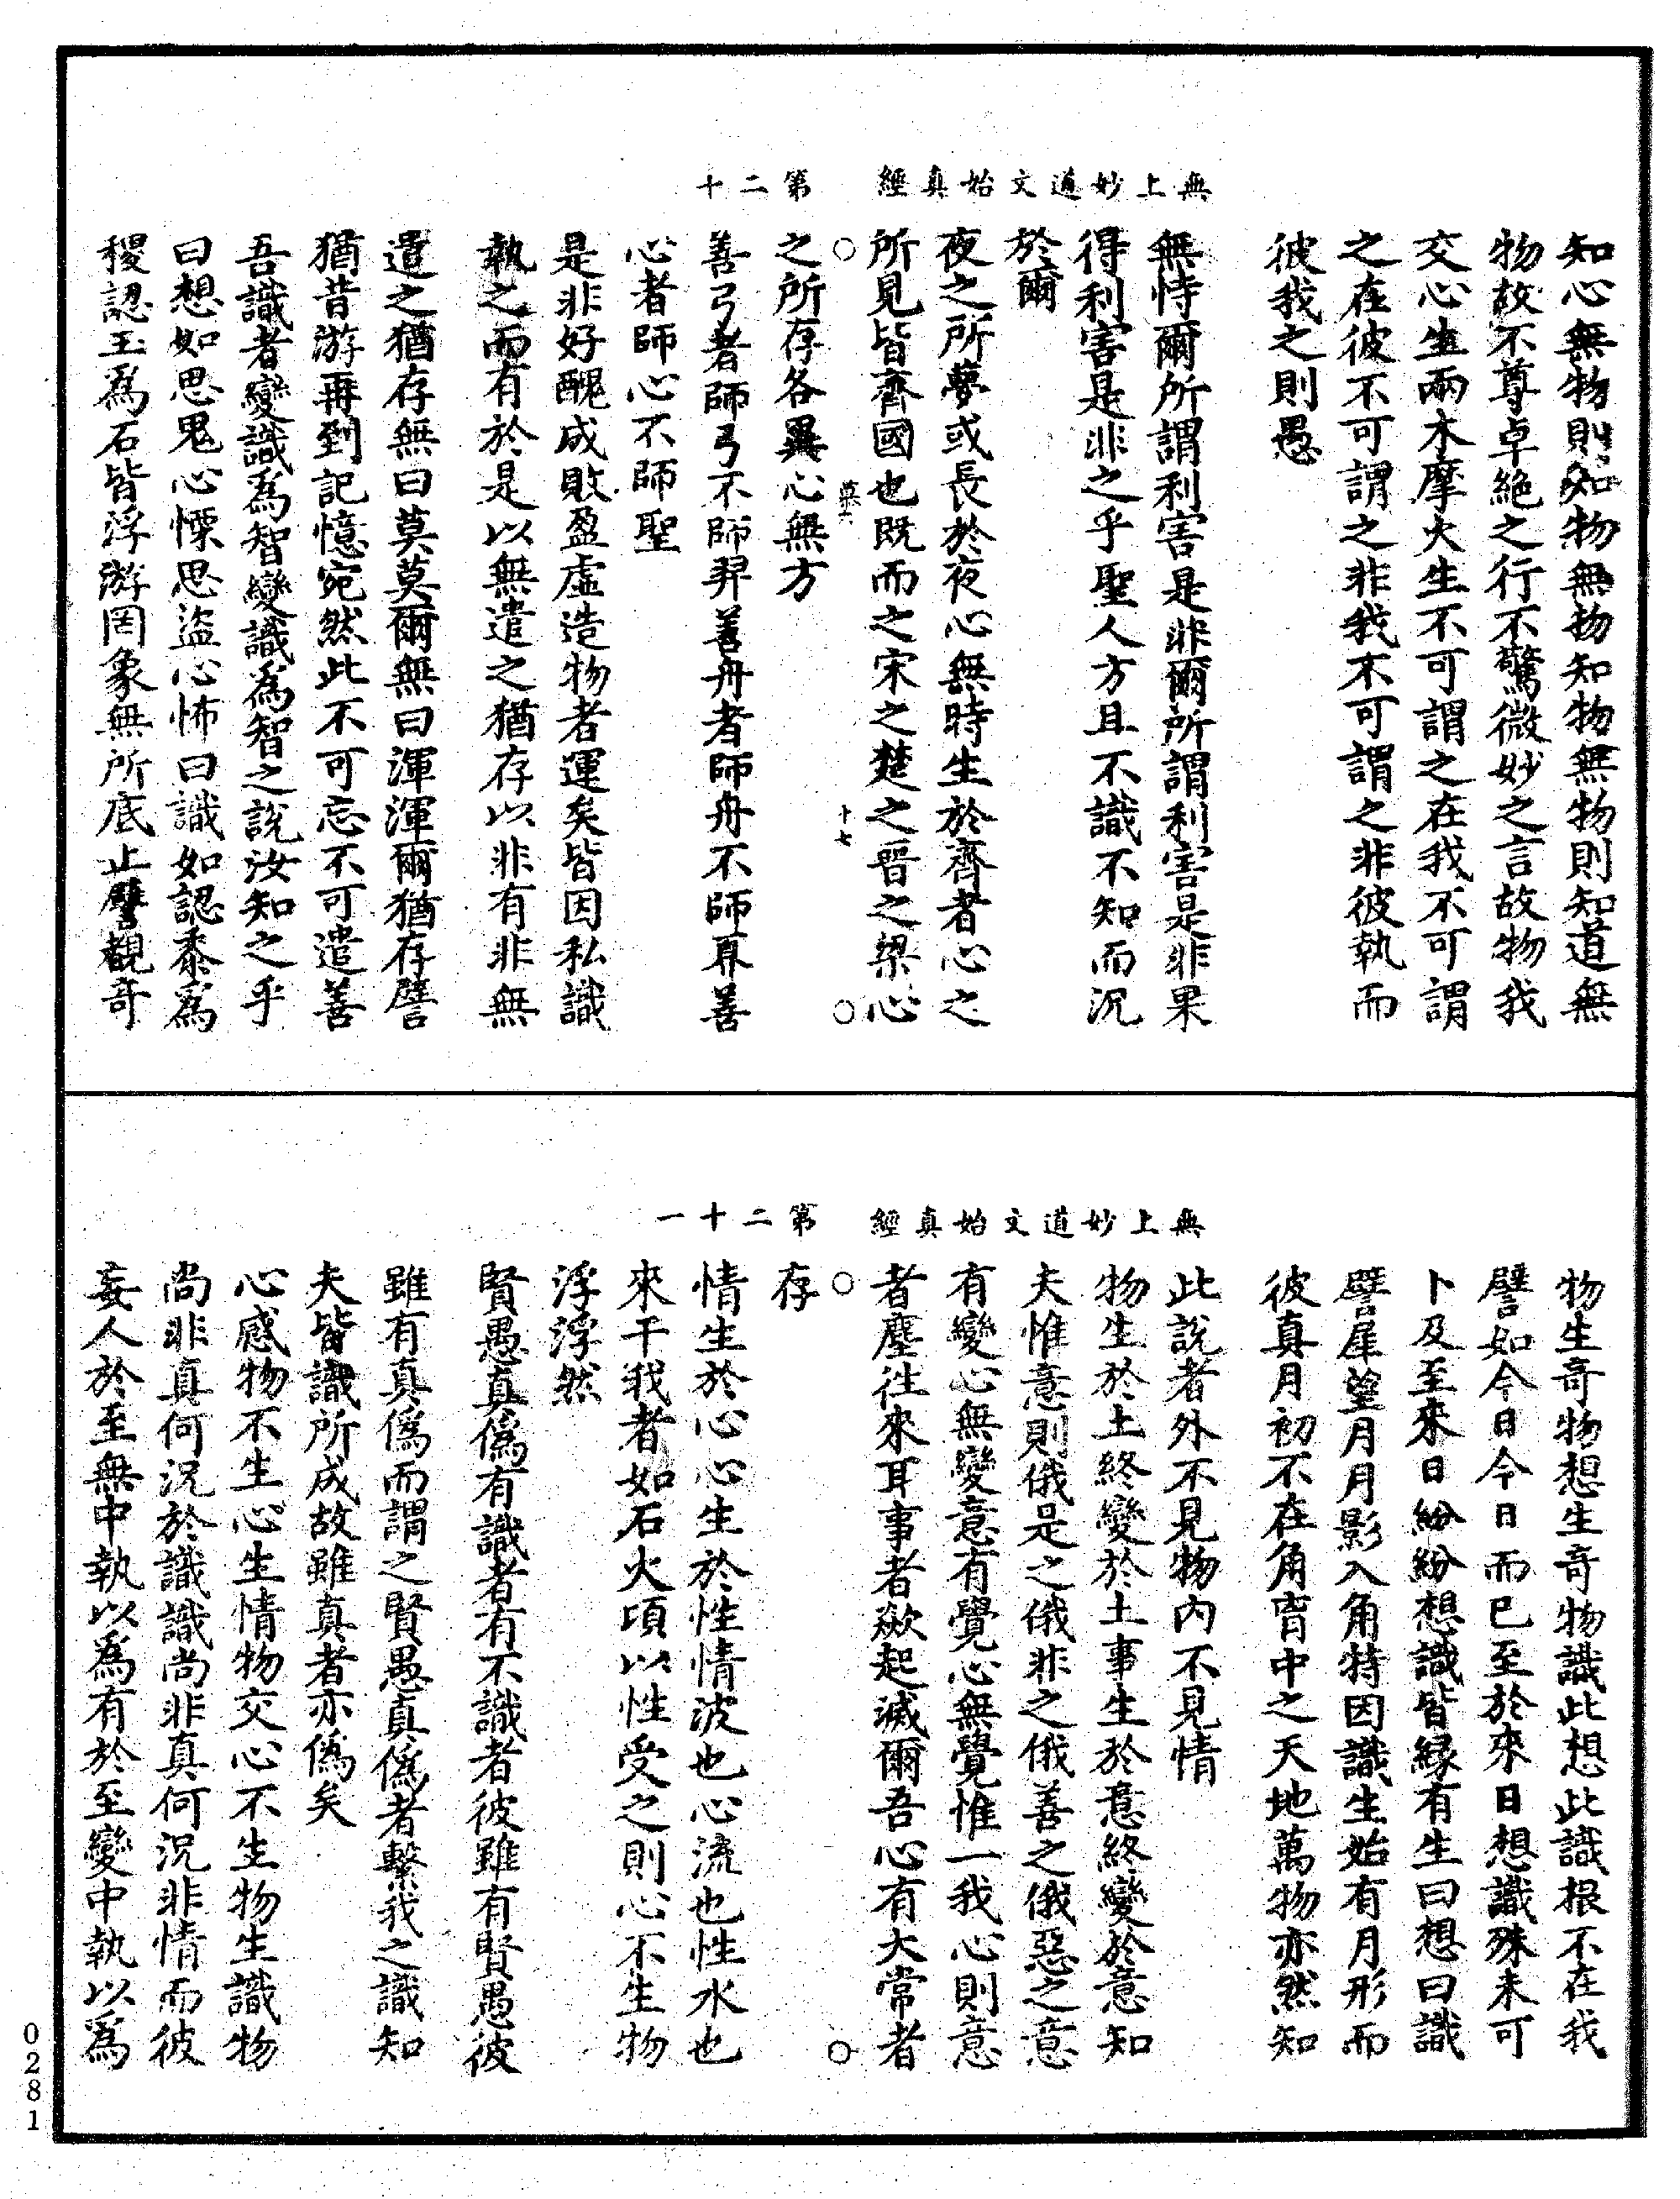 無上妙道文始真經　第二十
知心無物則知物無物知物無物則知道無
物故不尊卓絶之行不驚微妙之言故物我
交心生兩木摩火生不可謂之在我不可謂
之在彼不可謂之非我不可謂之非彼執而
彼我之則愚
無恃爾所謂利害是非爾所謂利害是非果
得利害是非之乎聖人方且不識不知而況
於爾
夜之所夢或長於夜心無時生於齊者心之
所見皆齊國也既而之宋之楚之晉之梁心
○　十七　○
之所存各異心無方
善弓者師弓不師羿善舟者師舟不師奡善
心者師心不師聖
是非好醜成敗盈虛造物者運矣皆因私識
執之而有於是以無遣之猶存以非有非無
遣之猶存無曰莫莫爾無曰渾渾爾猶存譬
猶昔游再到記憶宛然此不可忘不可遣善
吾識者變識為智變識為智之說汝知之乎
曰想如思鬼心慄思盜心怖曰識如認黍為
稷認玉為石皆浮游罔象無所底止譬觀奇
無上妙道文始真經　第二十一
物生奇物想生奇物識此想此識根不在我
譬如今日今日而已至於來日想識殊未可
卜及至來日紛紛想識皆緣有生曰想曰識
譬犀望月月影入角特因識生始有月形而
彼真月初不在角胷中之天地萬物亦然知
此說者外不見物內不見情
物生於土終變於土事生於意終變於意知
夫惟意則俄是之俄非之俄善之俄惡之意
有變心無變意有覺心無覺惟一我心則意
者塵往來耳事者欻起滅爾吾心有大常者
○　○
存
情生於心心生於性情波也心流也性水也
來干我者如石火頃以性受之則心不生物
浮浮然
賢愚真僞有識者有不識者彼雖有賢愚彼
雖有真僞而謂之賢愚真僞者繫我之識知
夫皆識所成故雖真者亦僞矣
心感物不生心生情物交心不生物生識物
尚非真何況於識識尚非真何況非情而彼
妄人於至無中執以為有於至變中執以為
0281